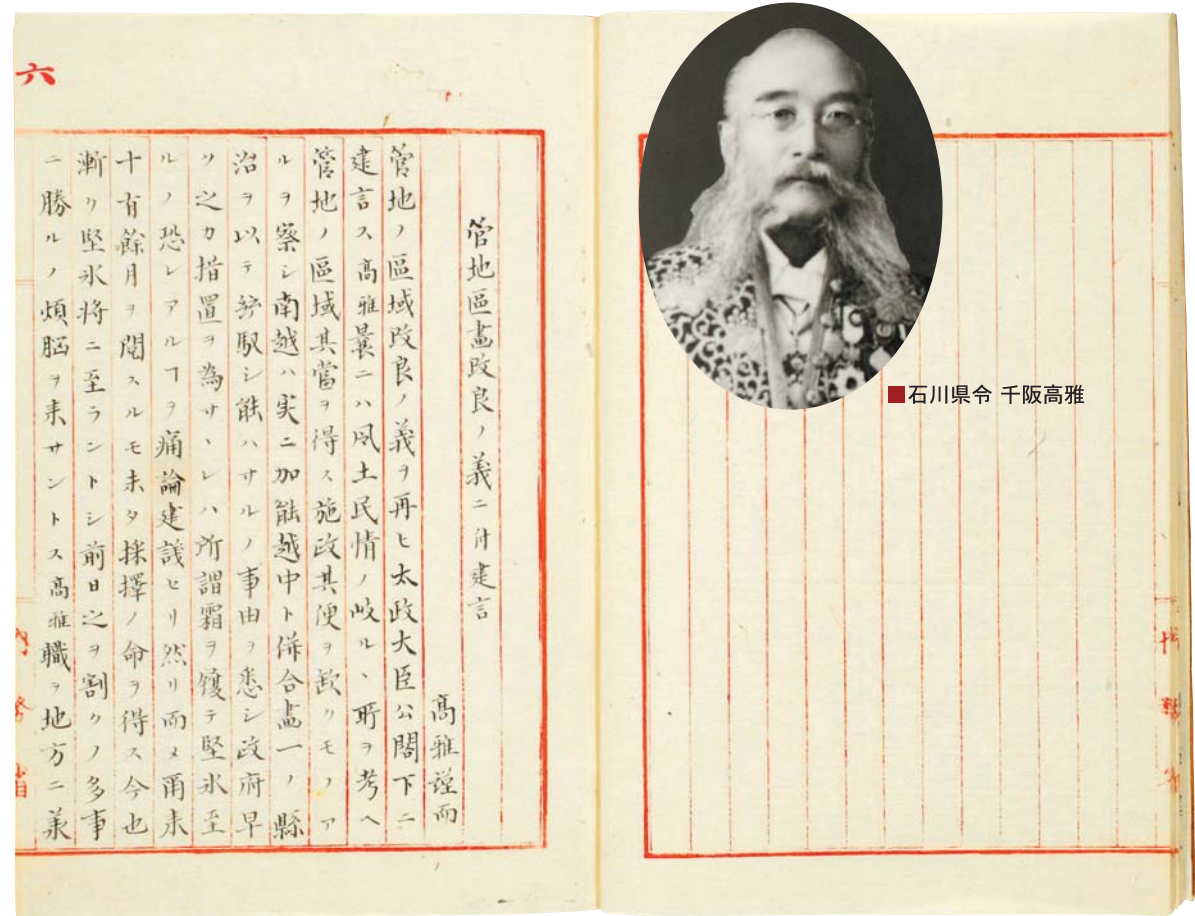 ■石川県令 千阪高雅
管地區畫改良ノ義ニ付建言
高雅謹而
管地ノ區域改良ノ義ヲ再ヒ太政大臣公閤下ニ
建言ス高雅曩ニハ風土民情ノ岐ル、所ヲ考ヘ
管地ノ區域其當ヲ得ス施政其便ヲ欠クモノア
ルヲ察シ南越ハ実ニ加能越中ト併合畫一ノ縣
治ヲ以テ駅シ能ハサルノ事由ヲ悉シ政府早
ク之カ措置ヲ為サヽレハ所謂霜ヲ履テ堅氷至
ルノ恐レアルヿヲ痛論建議セリ然リ而メ爾来
十有餘月ヲ閲スルモ未タ採擇ノ命ヲ得ス今也
漸ク堅氷将ニ至ラントシ前日之ヲ割クノ多事
ニ勝ルノ煩脳ヲ来サントス高雅職ヲ地方ニ承
六
内務省